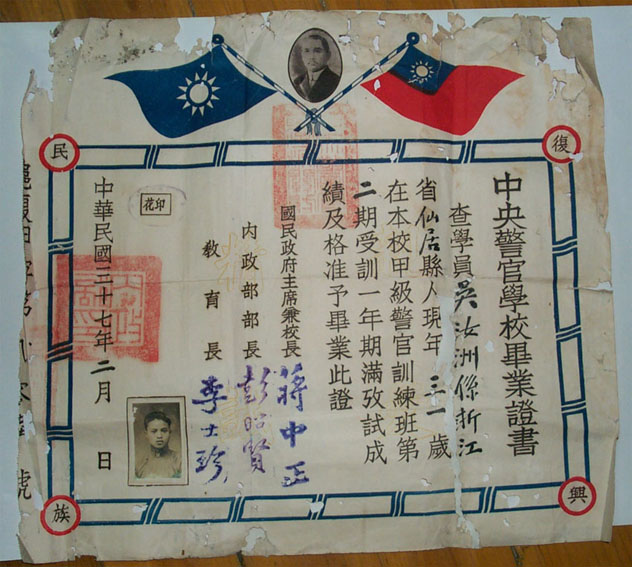 中央警官學校畢業證書
查學員吳汝洲係浙江
省仙居縣人現年三一歲
在本校甲級警官訓練班第
二期受訓一年期滿攷試成
績及格准予畢業此證
國民政府主席兼校長 蔣中正
內政部部長 彭昭賢
教育長 李士珍
印花
中華民國三十七年二月 日
復
興
民
族